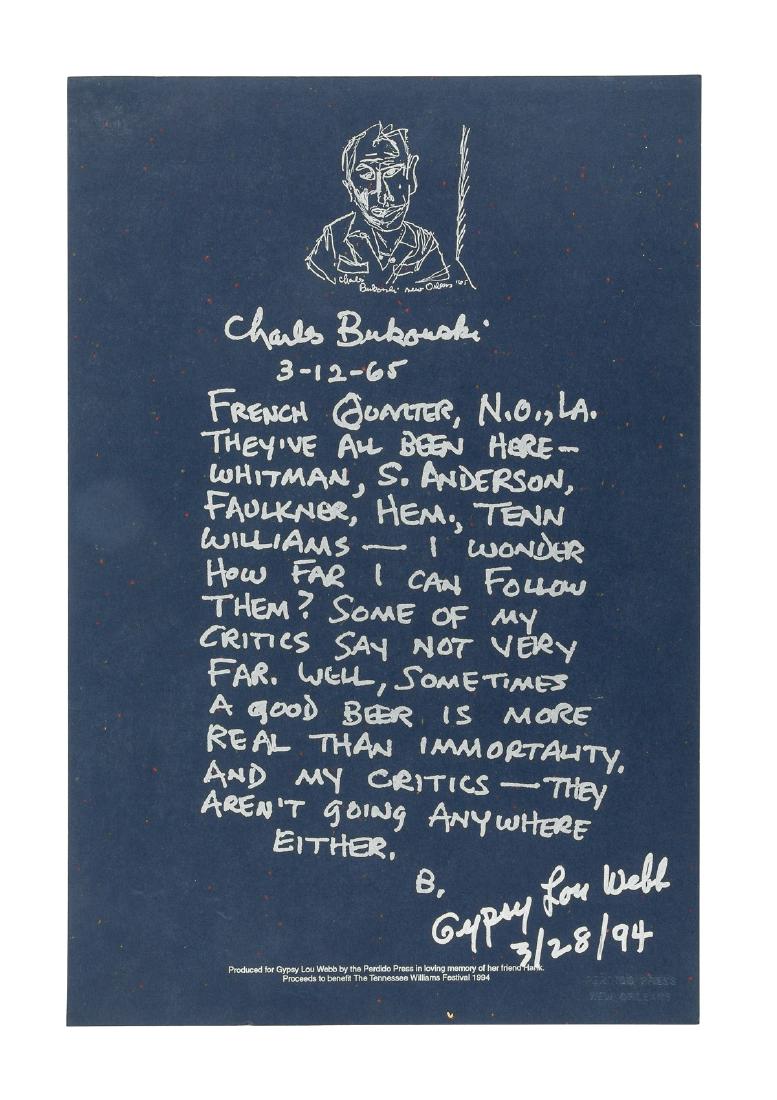 Charles
Bukowski new Orleans '65
Charles Bukowski
3-12-65
FRENCH QUARTER, N.O., LA.
THEY'VE ALL BEEN HERE—
WHITMAN, S. ANDERSON,
FAULKNER, HEM., TENN
WILLIAMS — I WONDER
HOW FAR I CAN FOLLOW
THEM? SOME OF MY
CRITICS SAY NOT VERY
FAR. WELL, SOMETIMES
A GOOD BEER IS MORE
REAL THAN IMMORTALITY.
AND MY CRITICS — THEY
AREN'T GOING ANYWHERE
EITHER.
B.
Gypsy Lou Webb
3/28/94
Produced for Gypsy Lou Webb by the Perdido Press in loving memory of her friend Hank.
Proceeds to benefit The Tennessee Williams Festival 1994
PERDIDO PRESS
NEW ORLEANS